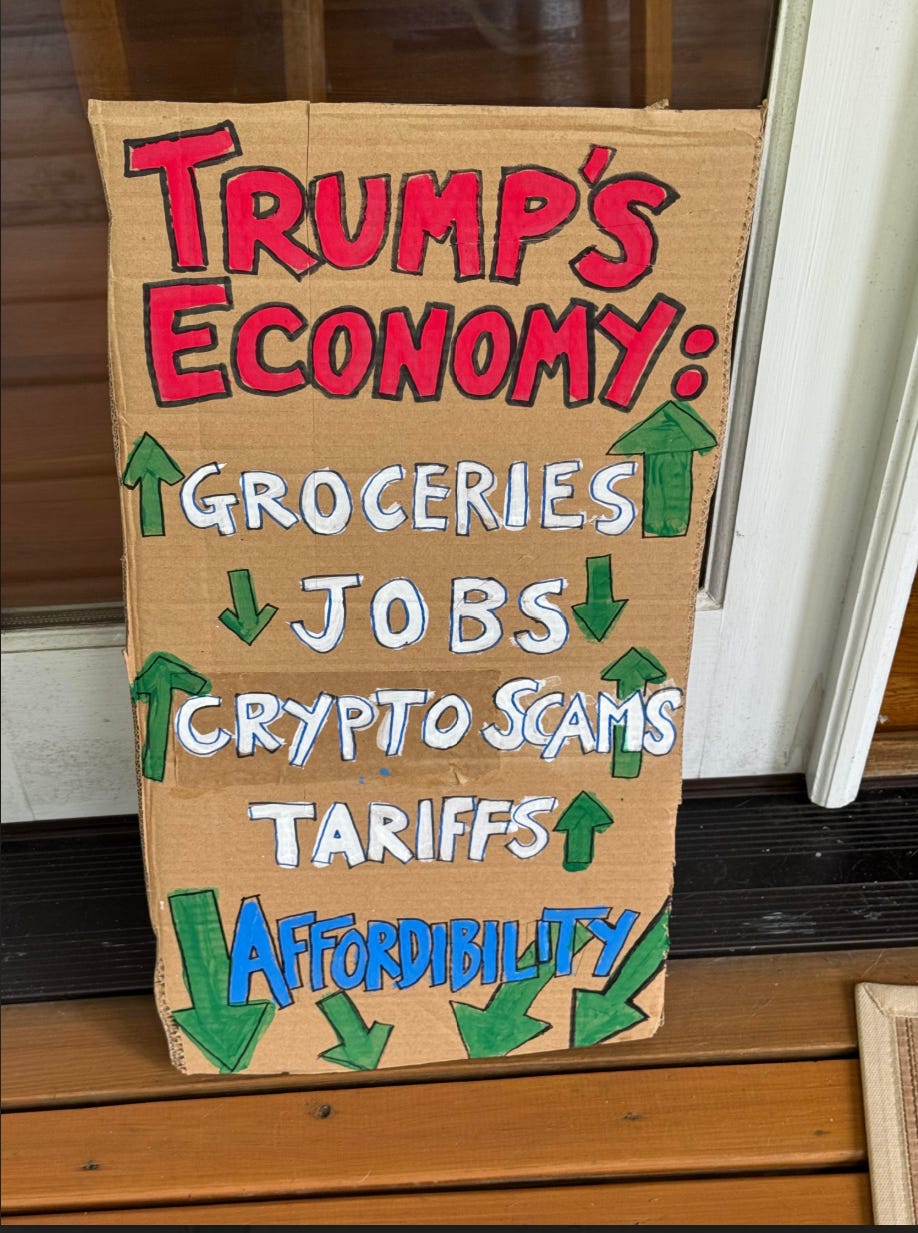 TRUMP'S
ECONOMY:
GROCERIES
JOBS
CRYPTO SCAMS
TARIFFS
AFFORDIBILITY